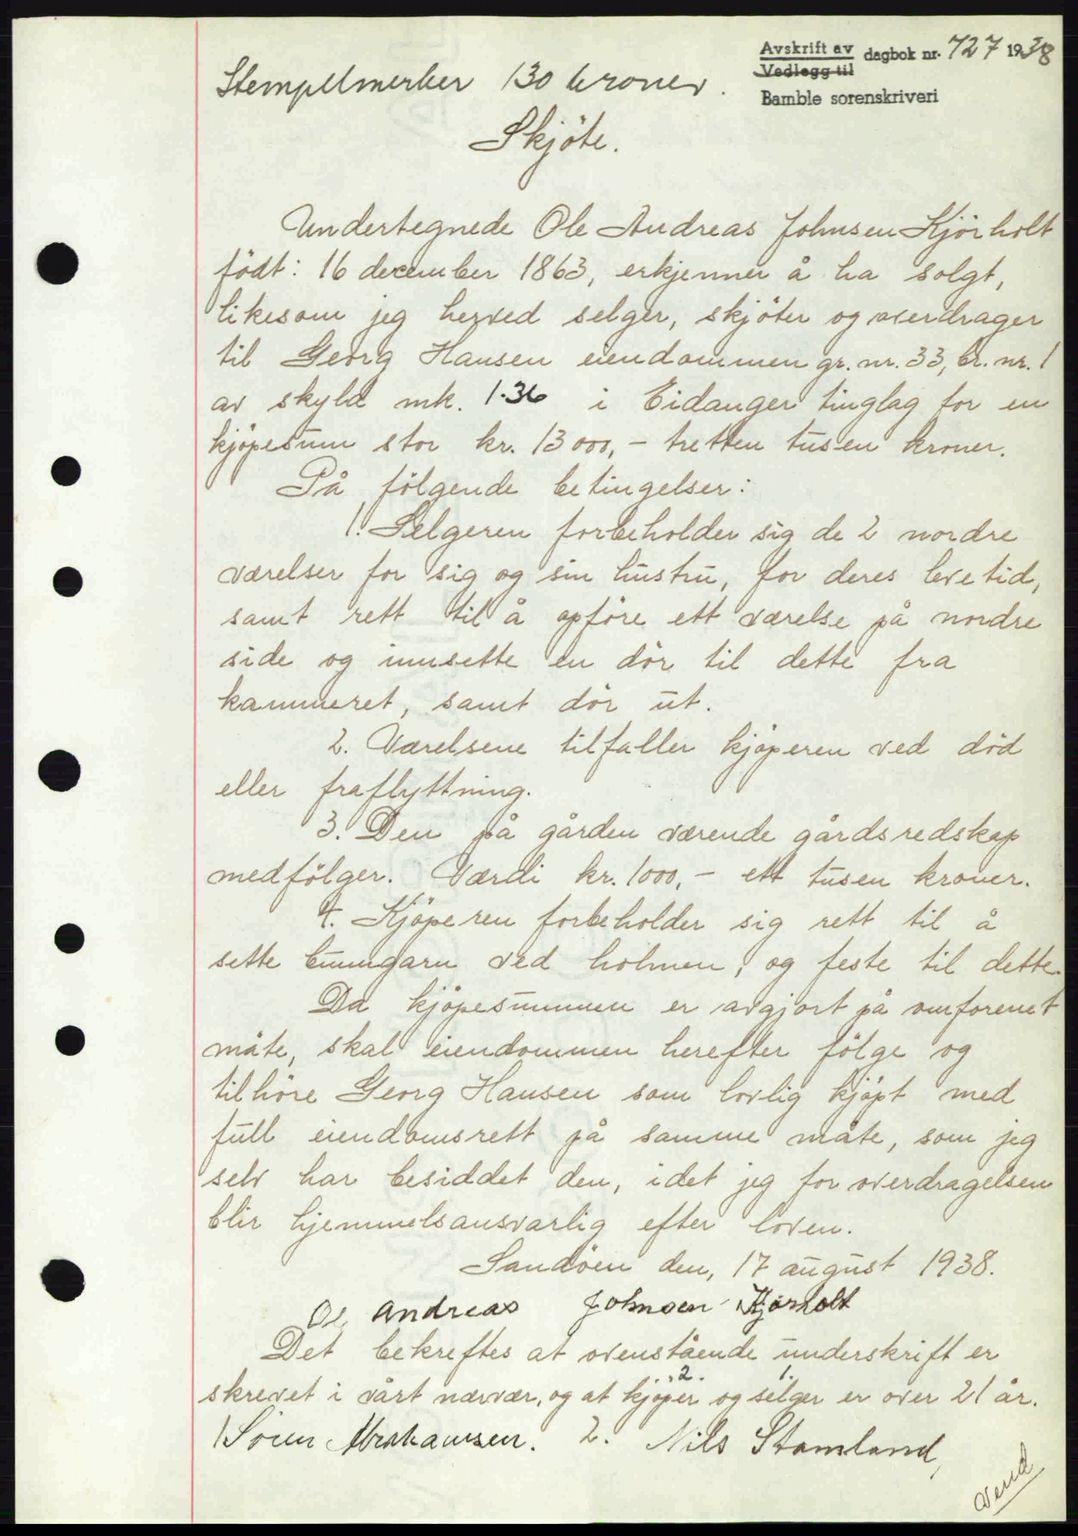 Avskrift av
Vedlegg til dagbok nr. 727 1938
Bamble sorenskriveri
Stempelmerker 130 kroner.
Skjöte.
Undertegnede Ole Andreas Johnsen Kjörholt
födt: 16 december 1863, erkjenner å ha solgt,
likesom jeg herved selger, skjöter og overdrager
til Georg Hansen eiendommen gr. nr. 33, br. nr. 1
av skyld mk. 1.36 i Eidanger tinglag for en
kjöpesum stor kr. 13000,- tretten tusen kroner.
På fölgende betingelser:
1. Selgeren forbeholder sig de 2 nordre
værelser for sig og sin hustru, for deres levetid,
samt rett til å opföre ett værelse på nordre
side og innsette en dör til dette fra
kammeret, samt dör ut.
2. Værelsene tilfaller kjöperen ved död
eller fraflyttning.
3. Den på gården værende gårdsredskap
medfölger. Værdi kr. 1000,- ett tusen kroner.
4. Kjöperen forbeholder sig rett til å
sette bunngarn ved holmen, og feste til dette.
Da kjöpesummen er avgjort på omforenet
måte, skal eiendommen herefter fölge og
tilhöre Georg Hansen som lovlig kjöpt med
full eiendomsrett på samme måte, som jeg
selv har besiddet den, idet jeg for overdragelsen
blir hjemmelsansvarlig efter loven.
Sandöen den, 17 august 1938.
Ole Andreas Johnsen Kjörholt
Det bekreftes at ovenstående underskrift er
skrevet i vårt nærvær, og at kjöper 2. og selger 1. er over 21 år.
1 Sören Abrahamsen. 2. Nils Stamland,
Vend